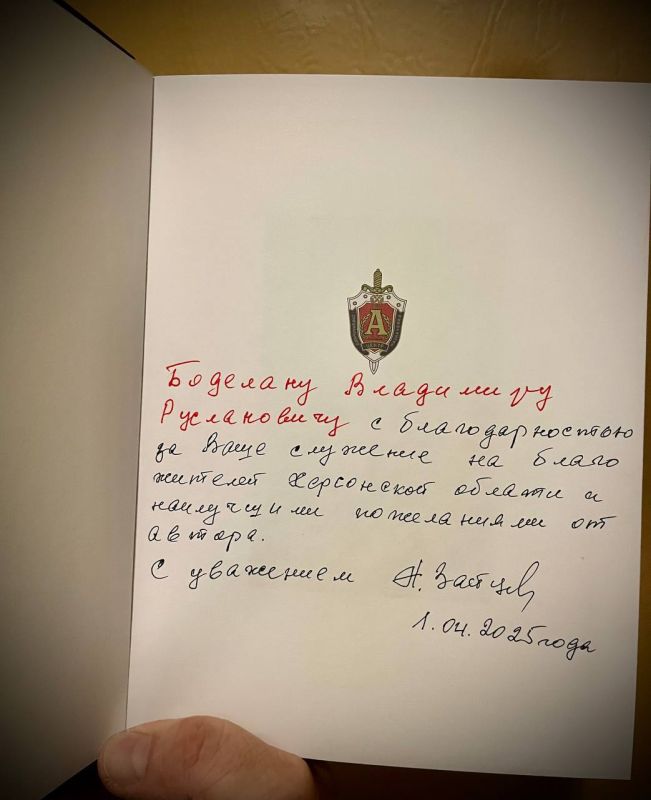 А
Боделану Владимиру
Руслановичу с благодарностью
за Ваше служение на благо
жителей Херсонской области и
наилучшими пожеланиями от
автора.
С уважением Н. Зайцев
1.04.2025 года